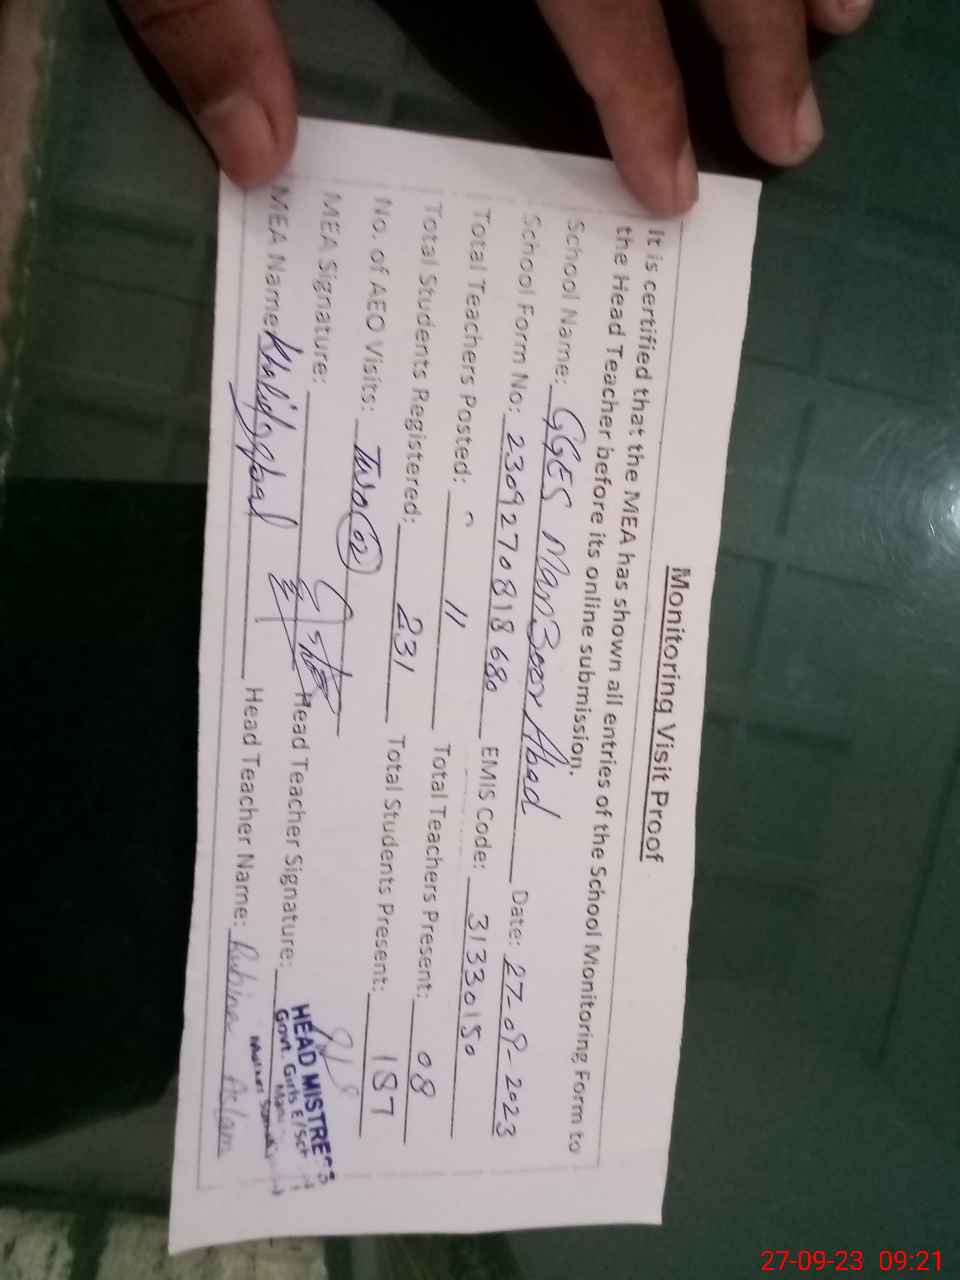 Monitoring Visit Proof
It is certified that the MEA has shown all entries of the School Monitoring Form to
the Head Teacher before its online submission.
School Name: GGES Manzoor Abad Date: 27-09-2023
School Form No: 2309270818680 EMIS Code: 31330150
Total Teachers Posted: 11 Total Teachers Present: 08
Total Students Registered: 231 Total Students Present: 187
No. of AEO Visits: Two (02)
MEA Signature: Head Teacher Signature:
HEAD MISTRESS
Govt. Girls E/Sch
MEA Name: Khalid Iqbal Head Teacher Name: Rubina Aslam
27-09-23 09:21